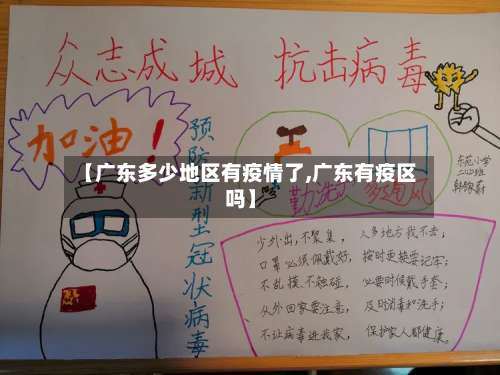 众志成城 抗击病毒
加油！
预防新型冠状病毒
【广东多少地区有疫情了,广东有疫区吗】
勤洗
多通风
东苑小学
二(2)班
少外出,不聚集, 人多地方我不去;
口罩必须佩戴好, 按时更换要记牢;
不乱摸、不触碰, 必要时候戴手套;
从外回家要注意, 及时消毒和洗手;
不让病毒进我家, 保护家人都健康。